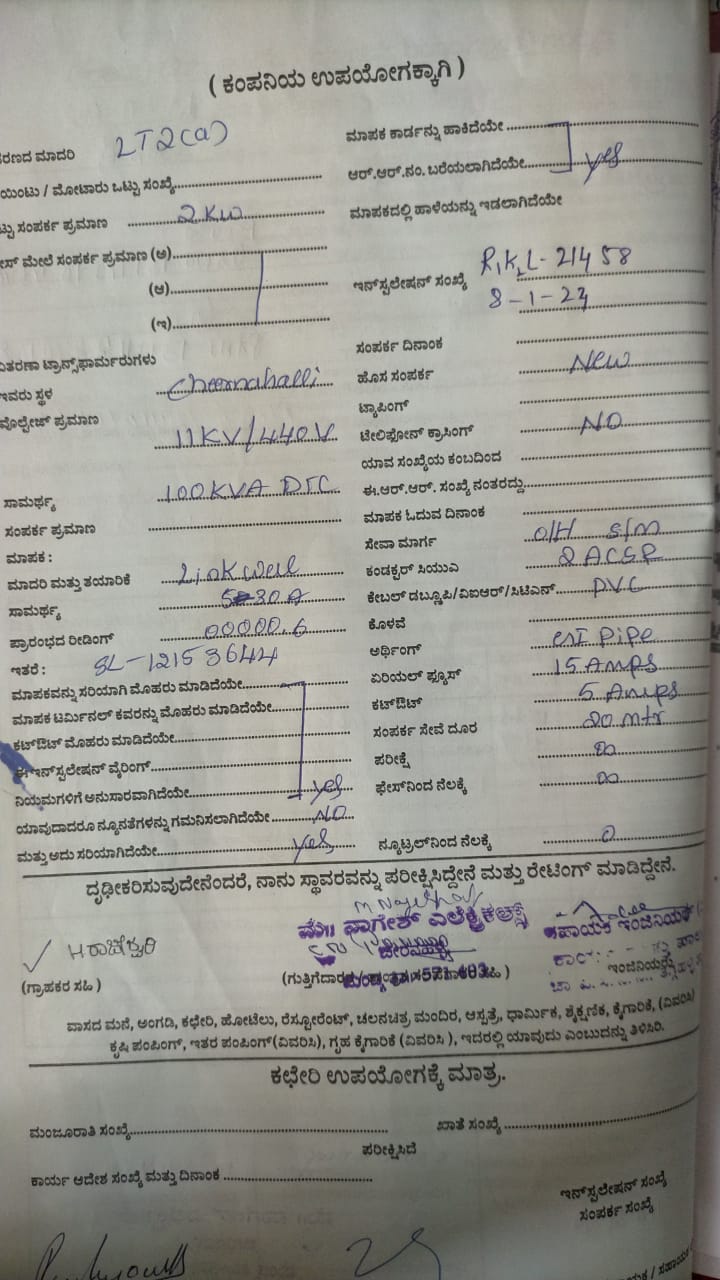 ( ಕಂಪನಿಯ ಉಪಯೋಗಕ್ಕಾಗಿ )
ರಣದ ಮಾದರಿ LT2(a)
ಯಿಂಟು / ಮೋಟಾರು ಒಟ್ಟು ಸಂಖ್ಯೆ
ಟ್ಟು ಸಂಪರ್ಕ ಪ್ರಮಾಣ 2KW
ೇಸ್ ಮೇಲೆ ಸಂಪರ್ಕ ಪ್ರಮಾಣ (ಅ)
(ಆ)
(ಇ)
ವಿತರಣಾ ಟ್ರಾನ್ಸ್‌ಫಾರ್ಮರುಗಳು
ಇವರು ಸ್ಥಳ Cheernahalli
ವೊಲ್ಟೇಜ್ ಪ್ರಮಾಣ
11KV/440V
ಸಾಮರ್ಥ್ಯ 100KVA DTC
ಸಂಪರ್ಕ ಪ್ರಮಾಣ
ಮಾಪಕ :
ಮಾದರಿ ಮತ್ತು ತಯಾರಿಕೆ Linkwell
ಸಾಮರ್ಥ್ಯ 5-30A
ಪ್ರಾರಂಭದ ರೀಡಿಂಗ್ 00000.6
ಇತರೆ : SL-12153644
ಮಾಪಕವನ್ನು ಸರಿಯಾಗಿ ಮೊಹರು ಮಾಡಿದೆಯೇ
ಮಾಪಕ ಟರ್ಮಿನಲ್ ಕವರನ್ನು ಮೊಹರು ಮಾಡಿದೆಯೇ
ಕಟ್‌ಔಟ್ ಮೊಹರು ಮಾಡಿದೆಯೇ
ಈ ಇನ್‌ಸ್ಟಲೇಷನ್ ವೈರಿಂಗ್
ನಿಯಮಗಳಿಗೆ ಅನುಸಾರವಾಗಿದೆಯೇ yes
ಯಾವುದಾದರೂ ನ್ಯೂನತೆಗಳನ್ನು ಗಮನಿಸಲಾಗಿದೆಯೇ NO
ಮತ್ತು ಅದು ಸರಿಯಾಗಿದೆಯೇ yes
ಮಾಪಕ ಕಾರ್ಡನ್ನು ಹಾಕಿದೆಯೇ
ಆರ್.ಆರ್.ನಂ. ಬರೆಯಲಾಗಿದೆಯೇ yes
ಮಾಪಕದಲ್ಲಿ ಹಾಳೆಯನ್ನು ಇಡಲಾಗಿದೆಯೇ
ಇನ್‌ಸ್ಟಲೇಷನ್ ಸಂಖ್ಯೆ R,K,L-21458
8-1-23
ಸಂಪರ್ಕ ದಿನಾಂಕ
ಹೊಸ ಸಂಪರ್ಕ New
ಟ್ಯಾಪಿಂಗ್
ಟೇಲಿಫೋನ್ ಕ್ರಾಸಿಂಗ್ NO
ಯಾವ ಸಂಖ್ಯೆಯ ಕಂಬದಿಂದ
ಈ.ಆರ್.ಆರ್. ಸಂಖ್ಯೆ ನಂತರದ್ದು
ಮಾಪಕ ಓದುವ ದಿನಾಂಕ
ಸೇವಾ ಮಾರ್ಗ O/H S/M
ಕಂಡಕ್ಟರ್ ಸಿಯುವಿ 2 ACSR
ಕೇಬಲ್ ಡಬ್ಲೂಪಿ/ವಿಐಆರ್/ಸಿಟಿಎನ್ PVC
ಕೊಳವೆ
ಅರ್ಥಿಂಗ್ GI Pipe
ಏರಿಯಲ್ ಫ್ಯೂಸ್ 15 Amps
ಕಟ್‌ಔಟ್ 5 Amps
ಸಂಪರ್ಕ ಸೇವೆ ದೂರ 20 mtr
ಪರೀಕ್ಷೆ ∞
ಫೇಸ್‌ನಿಂದ ನೆಲಕ್ಕೆ ∞
ನ್ಯೂಟ್ರಲ್‌ನಿಂದ ನೆಲಕ್ಕೆ 0
ದೃಢೀಕರಿಸುವುದೇನೆಂದರೆ, ನಾನು ಸ್ಥಾವರವನ್ನು ಪರೀಕ್ಷಿಸಿದ್ದೇನೆ ಮತ್ತು ರೇಟಿಂಗ್ ಮಾಡಿದ್ದೇನೆ.
ಮೆ|| ನಾಗೇಶ್ ಎಲೆಕ್ಟ್ರಿಕಲ್ಸ್
ಸಹಾಯಕ ಇಂಜಿನಿಯರ್
(ಗ್ರಾಹಕರ ಸಹಿ )
ಇಂಜಿನಿಯರ
ವಾಸದ ಮನೆ, ಅಂಗಡಿ, ಕಛೇರಿ, ಹೋಟೆಲು, ರೆಸ್ಟೋರೆಂಟ್, ಚಲನಚಿತ್ರ ಮಂದಿರ, ಆಸ್ಪತ್ರೆ, ಧಾರ್ಮಿಕ, ಶೈಕ್ಷಣಿಕ, ಕೈಗಾರಿಕೆ, (ವಿವರಿಸಿ)
ಕೃಷಿ ಪಂಪಿಂಗ್, ಇತರ ಪಂಪಿಂಗ್(ವಿವರಿಸಿ), ಗೃಹ ಕೈಗಾರಿಕೆ (ವಿವರಿಸಿ ), ಇದರಲ್ಲಿ ಯಾವುದು ಎಂಬುದನ್ನು ತಿಳಿಸಿರಿ.
ಕಛೇರಿ ಉಪಯೋಗಕ್ಕೆ ಮಾತ್ರ.
ಮಂಜೂರಾತಿ ಸಂಖ್ಯೆ ಖಾತೆ ಸಂಖ್ಯೆ
ಪರೀಕ್ಷಿಸಿದೆ
ಕಾರ್ಯ ಆದೇಶ ಸಂಖ್ಯೆ ಮತ್ತು ದಿನಾಂಕ
ಇನ್‌ಸ್ಟಲೇಷನ್ ಸಂಖ್ಯೆ
ಸಂಪರ್ಕ ಸಂಖ್ಯೆ